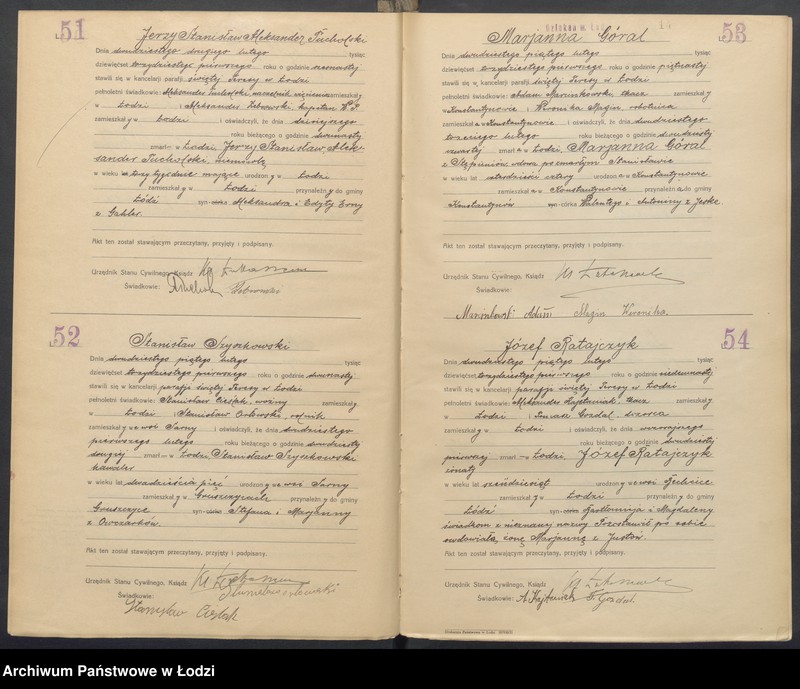 51
Jerzy Stanisław Aleksander Tucholski
Dnia dwudziestego drugiego lutego tysiąc
dziewięćset trzydziestego pierwszego roku o godzinie
stawili się w kancelarji parafji świętej Teresy w Łodzi
pełnoletni świadkowie: Aleksander Tucholski, zamieszkały
w Łodzi i Aleksander Żebrowski kapitan W.P.
zamieszkały w Łodzi i oświadczyli, że dnia dzisiejszego
roku bieżącego o godzinie dwunastej
zmarł w Łodzi, Jerzy Stanisław Alek-
sander Tucholski niemowlę
w wieku trzy tygodnie mające urodzony w Łodzi
zamieszkały w Łodzi przynależny do gminy
Łódź syn Aleksandra i Edyty Erny
z Gahler.
Akt ten został stawającym przeczytany, przyjęty i podpisany.
Urzędnik Stanu Cywilnego, Ksiądz
Świadkowie:
52
Stanisław Szyszkowski
Dnia dwudziestego piątego lutego tysiąc
dziewięćset trzydziestego pierwszego roku o godzinie dwunastej
stawili się w kancelarji parafji świętej Teresy w Łodzi
pełnoletni świadkowie: Stanisław Cieślak, woźny zamieszkały
w Łodzi i Stanisław Orłowski, rolnik
zamieszkały we wsi Sarny i oświadczyli, że dnia dwudziestego
pierwszego lutego roku bieżącego o godzinie dwudziestej
drugiej zmarł w Łodzi, Stanisław Szyszkowski
kawaler
w wieku lat dwadzieścia pięć urodzony we wsi Sarny
zamieszkały w przynależny do gminy
Gruszczyce syn Stefana i Marjanny
z Owczarków.
Akt ten został stawającym przeczytany, przyjęty i podpisany.
Urzędnik Stanu Cywilnego, Ksiądz
Świadkowie:
Stanisław Cieślak
53
Marjanna Góral
Dnia dwudziestego piątego lutego tysiąc
dziewięćset trzydziestego pierwszego roku o godzinie piętnastej
stawili się w kancelarji parafji świętej Teresy w Łodzi
pełnoletni świadkowie: Adam Marcinkowski, tkacz zamieszkały
w Konstantynowie i Weronika Magin robotnica
zamieszkała w Konstantynowie i oświadczyli, że dnia dwudziestego
trzeciego lutego roku bieżącego o godzinie dwudziestej
czwartej zmarła w Łodzi, Marjanna Góral
z Stępieniów wdowa po zmarłym Stanisławie
w wieku lat czterdzieści cztery urodzona w Konstantynowie
zamieszkała w Konstantynowie przynależna do gminy
Konstantynów córka Walentego i Antoniny z
Akt ten został stawającym przeczytany, przyjęty i podpisany.
Urzędnik Stanu Cywilnego, Ksiądz
Świadkowie:
Adam Magin Weronika.
54
Józef Ratajczyk
Dnia dwudziestego piątego lutego tysiąc
dziewięćset trzydziestego pierwszego roku o godzinie siedemnastej
stawili się w kancelarji parafji świętej Teresy w Łodzi
pełnoletni świadkowie: Aleksander Kajetaniak, tkacz zamieszkały
w Łodzi i Gozdal, dozorca
zamieszkały w Łodzi i oświadczyli, że dnia wczorajszego
roku bieżącego o godzinie dwudziestej
pierwszej zmarł w Łodzi, Józef Ratajczyk
żonaty
w wieku lat sześćdziesiąt urodzony we wsi
zamieszkały w Łodzi przynależny do gminy
Łódź syn Bartłomieja i Magdaleny
świadkom z nieznanej nazwy. Pozostawił po sobie
owdowiałą żonę Marjannę z Justów.
Akt ten został stawającym przeczytany, przyjęty i podpisany.
Urzędnik Stanu Cywilnego, Ksiądz
Świadkowie: A. Kajetaniak F. Gozdal
Archiwum Państwowe w Łodzi